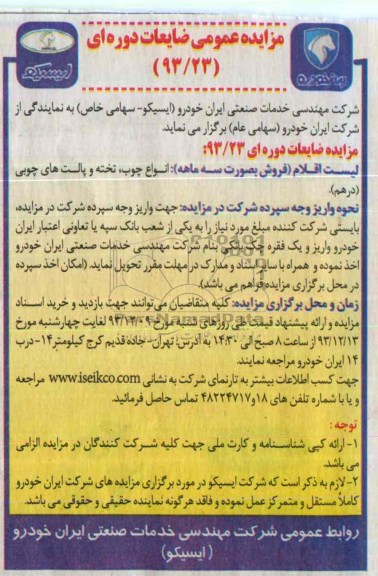 مزایده عمومی ضایعات دوره ای
(۹۳/۲۳)
ایسیکو
شرکت مهندسی خدمات صنعتی ایران خودرو (ایسیکو- سهامی خاص) به نمایندگی از
شرکت ایران خودرو (سهامی عام) برگزار می نماید.
مزایده ضایعات دوره ای ۹۳/۲۳:
لیست اقلام (فروش بصورت سه ماهه): انواع چوب، تخته و پالت های چوبی
(درهم).
نحوه واریز وجه سپرده شرکت در مزایده: جهت واریز وجه سپرده شرکت در مزایده،
بایستی شرکت کننده مبلغ مورد نیاز را به یکی از شعب بانک سپه یا تعاونی اعتبار ایران
خودرو واریز و یک فقره چک بانکی بنام شرکت مهندسی خدمات صنعتی ایران خودرو
اخذ نموده و همراه با سایر اسناد و مدارک در مهلت مقرر تحویل نماید. (امکان اخذ سپرده
در محل برگزاری مزایده فراهم می باشد).
زمان و محل برگزاری مزایده: کلیه متقاضیان می‌توانند جهت بازدید و خرید اسناد
مزایده و ارائه پیشنهاد قیمت طی روزهای شنبه مورخ ۹۳/۱۲/۰۹ لغایت چهارشنبه مورخ
۹۳/۱۲/۱۳ از ساعت ۸ صبح الی ۱۴:۳۰ به آدرس تهران- جاده قدیم کرج کیلومتر ۱۴- درب
۱۴ ایران خودرو مراجعه نمایند.
جهت کسب اطلاعات بیشتر به تارنمای شرکت به نشانی www.iseikco.com مراجعه
و یا با شماره تلفن های ۱۸و۴۸۲۲۴۷۱۷ تماس حاصل فرمائید.
توجه :
۱- ارائه کپی شناسنامه و کارت ملی جهت کلیه شرکت کنندگان در مزایده الزامی
می باشد.
۲- لازم به ذکر است که شرکت ایسیکو در مورد برگزاری مزایده های شرکت ایران خودرو
کاملاً مستقل و متمرکز عمل نموده و فاقد هرگونه نماینده حقیقی و حقوقی می باشد.
روابط عمومی شرکت مهندسی خدمات صنعتی ایران خودرو
(ایسیکو)